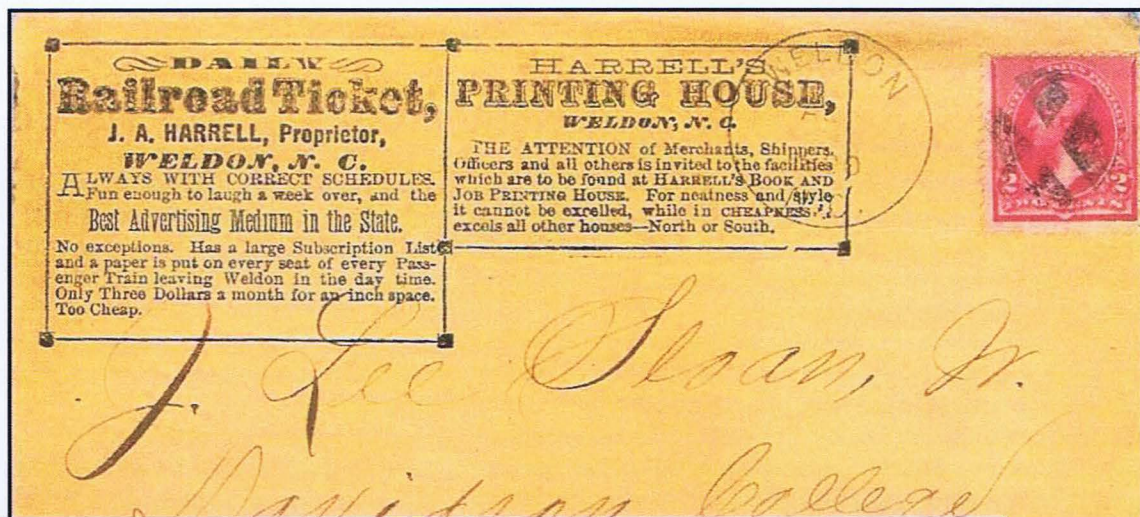 DAILY
Railroad Ticket,
J. A. HARRELL, Proprietor,
WELDON, N. C.
ALWAYS WITH CORRECT SCHEDULES.
Fun enough to laugh a week over, and the
Best Advertising Medium in the State.
No exceptions. Has a large Subscription List
and a paper is put on every seat of every Pass-
enger Train leaving Weldon in the day time.
Only Three Dollars a month for an inch space.
Too Cheap.
HARRELL'S
PRINTING HOUSE,
WELDON, N. C.
THE ATTENTION of Merchants, Shippers,
Officers and all others is invited to the facilities
which are to be found at HARRELL'S BOOK AND
JOB PRINTING HOUSE. For neatness and style
it cannot be excelled, while in CHEAPNESS
excels all other houses—North or South.
WELDON
2 2
J. Lee Sloan, Jr.
Davidson College